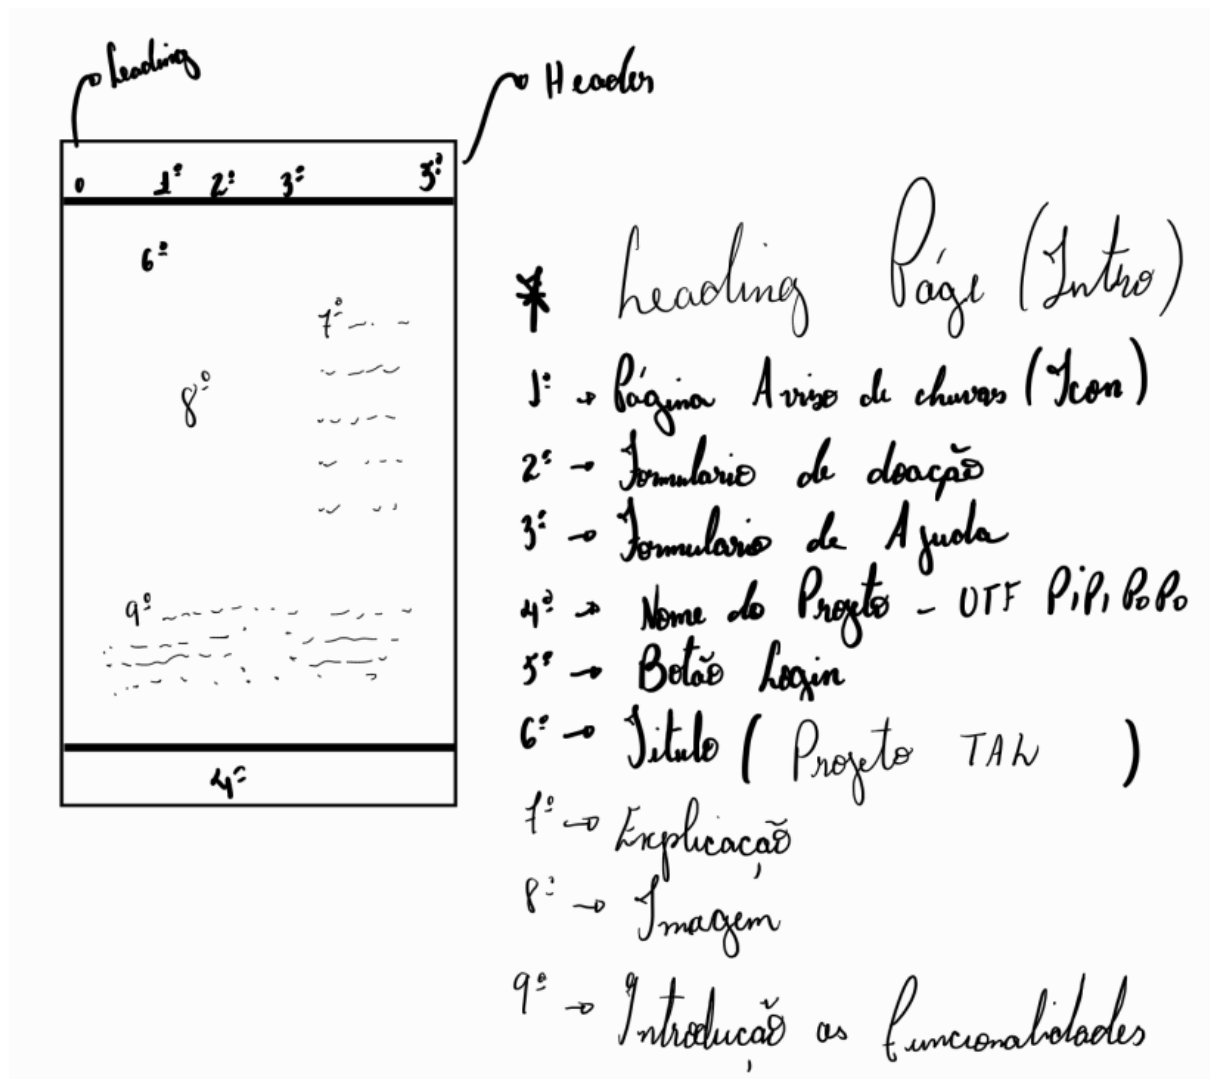 Leading
Header
0 1º 2º 3º 5º
6º
7º
8º
9º
4º
* Leading Páge (Intro)
1º → Página Aviso de chuvas (Icon)
2º → Formulario de doação
3º → Formulario de Ajuda
4º → Nome do Projeto - UTF PiPi PoPo
5º → Botão Login
6º → Titulo ( Projeto TAL )
7º → Explicação
8º → Imagem
9º → Introdução as funcionalidades